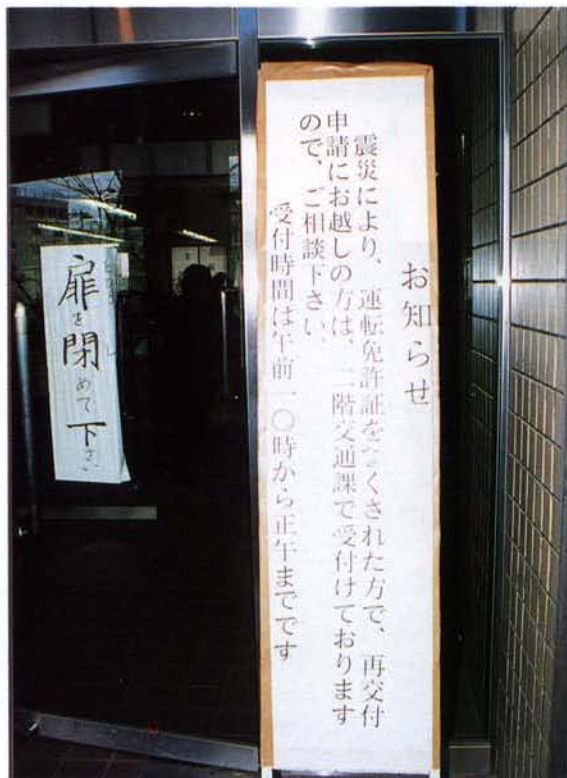 お知らせ
震災により、運転免許証をなくされた方で、再交付
申請にお越しの方は、二階交通課で受付けております
ので、ご相談下さい。
受付時間は午前一〇時から正午までです
扉を閉めて下さい